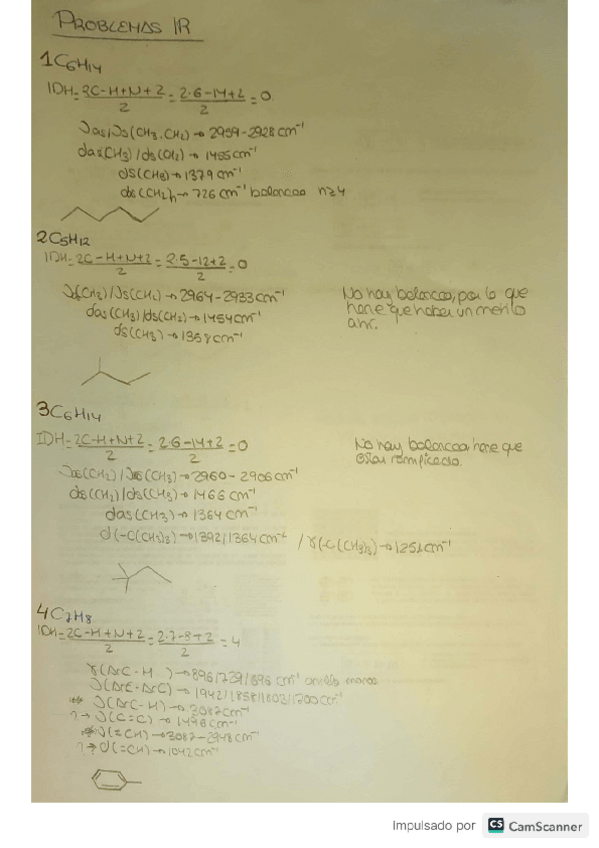 PROBLEMAS IR
1 C6H14
IDH = 2C-H+N+2 / 2 = 2·6-14+2 / 2 = 0
νas/νs(CH3,CH2) → 2959-2928 cm⁻¹
das(CH3)/ds(CH2) → 1455 cm⁻¹
ds(CH3) → 1379 cm⁻¹
ds(CH2)n → 726 cm⁻¹ balanceo n≥4
2 C5H12
IDH = 2C-H+N+2 / 2 = 2·5-12+2 / 2 = 0
ν(CH3)/νs(CH2) → 2964-2933 cm⁻¹
das(CH3)/ds(CH2) → 1454 cm⁻¹
ds(CH3) →
No hay balanceo, por lo que
tiene que haber un metilo
ahí.
3 C6H14
IDH = 2C-H+N+2 / 2 = 2·6-14+2 / 2 = 0
νas(CH2)/νas(CH3) → 2960-2906 cm⁻¹
ds(CH2)/ds(CH3) → 1466 cm⁻¹
das(CH3) → 1364 cm⁻¹
d(-C(CH3)3) → 1392/1364 cm⁻¹ / γ(-C(CH3)3) → 1251 cm⁻¹
No hay balanceo, tiene que
estar ramificado.
4 C7H8
IDH = 2C-H+N+2 / 2 = 2·7-8+2 / 2 = 4
γ(ArC-H) → 896/739/696 cm⁻¹ anillo
→ 1942/1858/1803/1700 cm⁻¹
ν(ArC-H) → 3087 cm⁻¹
? → ν(C=C) → 1496 cm⁻¹
ν(=CH) → 3087-2948 cm⁻¹
? → d(=CH) → 1042 cm⁻¹
Impulsado por CS CamScanner